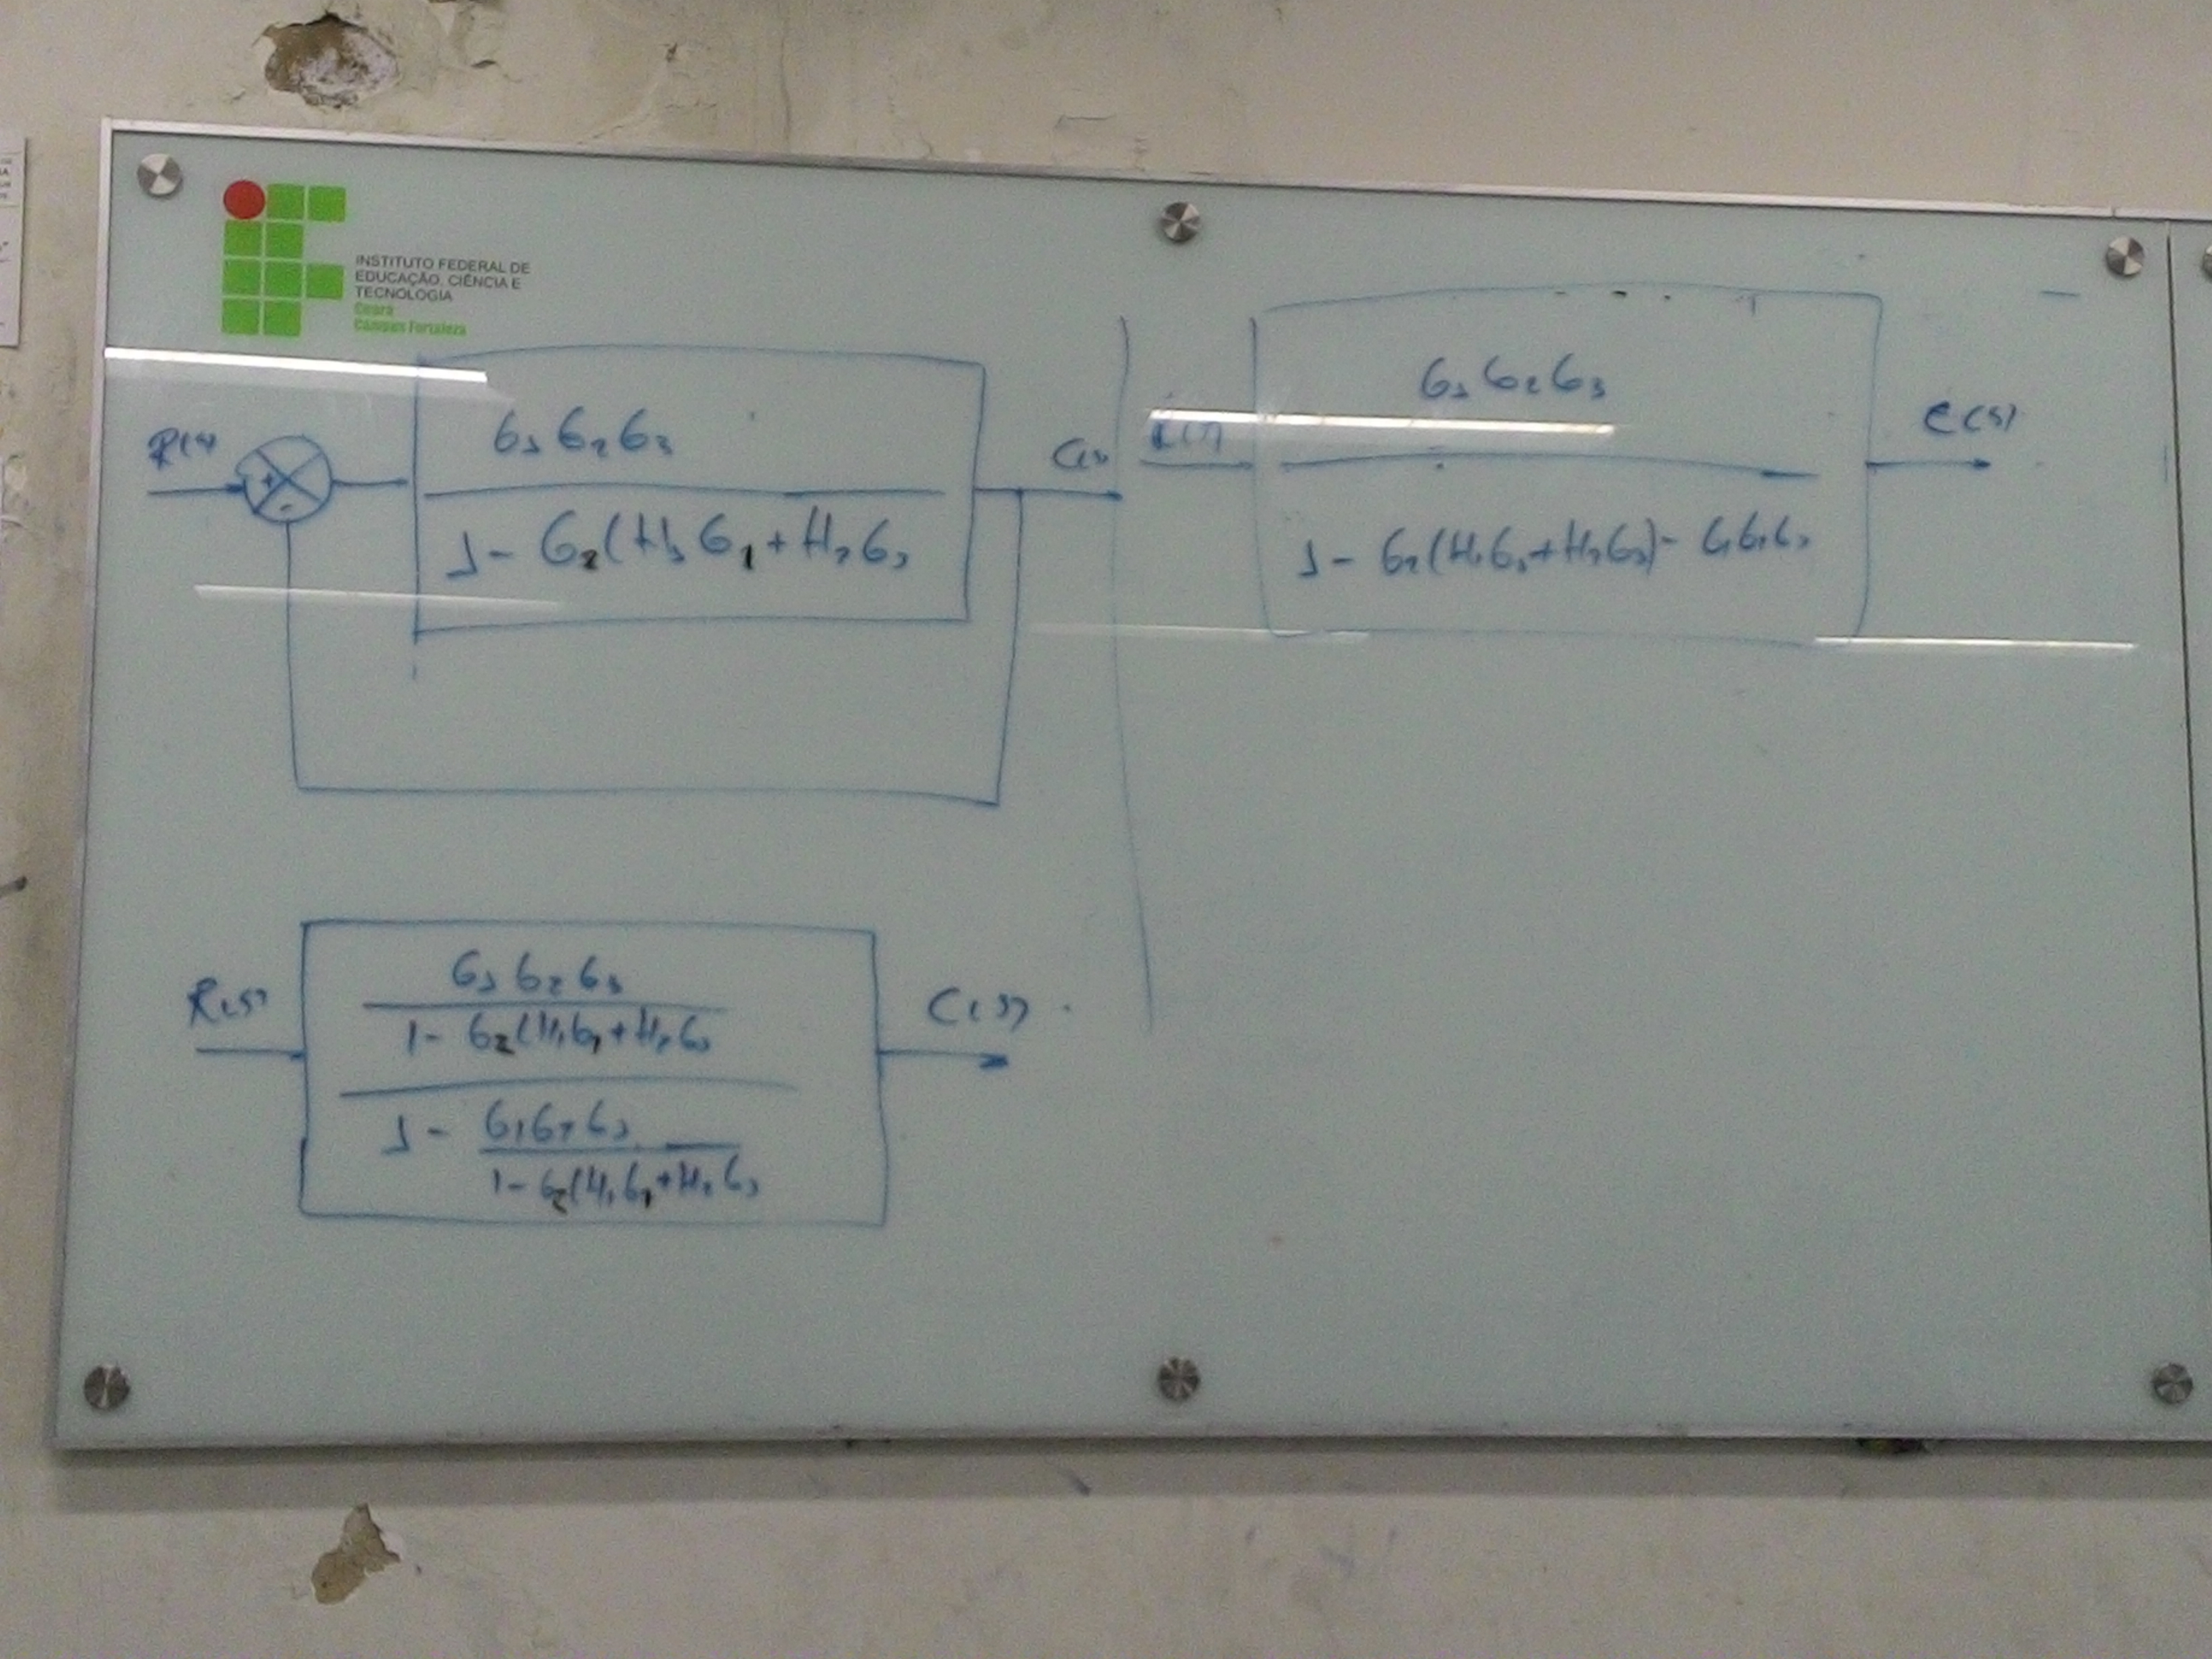 INSTITUTO FEDERAL DE
EDUCAÇÃO, CIÊNCIA E
TECNOLOGIA
Ceará
Câmpus Fortaleza
R(s)
+
-
G1 G2 G3
1 - G2(H1 G1 + H2 G3
C(s)
R(s)
G1 G2 G3
1 - G2(H1G1 + H2G3) - G1G2G3
C(s)
R(s)
G1 G2 G3
1 - G2(H1G1 + H2G3
1 - G1G2G3
1 - G2(H1G1 + H2G3
C(s)